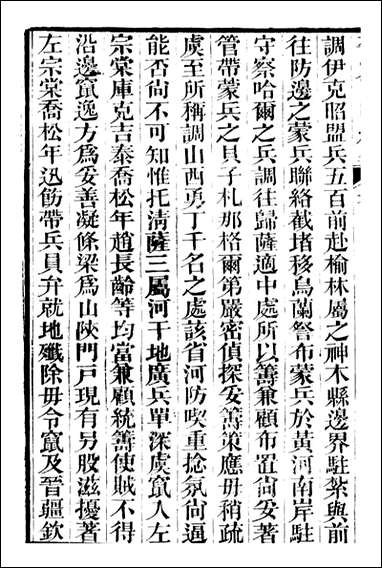 調伊克昭盟兵五百前赴榆林屬之神木縣邊界駐紮與前
往防邊之蒙兵聯絡截堵移烏蘭詧布蒙兵於黃河南岸駐
守察哈爾之兵調往歸薩適中處所以籌兼顧布置尙妥著
管帶蒙兵之貝子札那格爾第嚴密偵探妥籌策應毋稍疏
虞至所稱調山西勇丁千名之處該省河防喫重捻氛尙逼
能否尙不可知惟托淸薩三屬河干地廣兵單深虞竄入左
宗棠庫克吉泰喬松年趙長齡等均當兼顧統籌使賊不得
沿邊竄逸方爲妥善凝條梁爲山陜門戸現有另股滋擾著
左宗棠喬松年迅飭帶兵員弁就地殲除毋令竄及晉疆欽